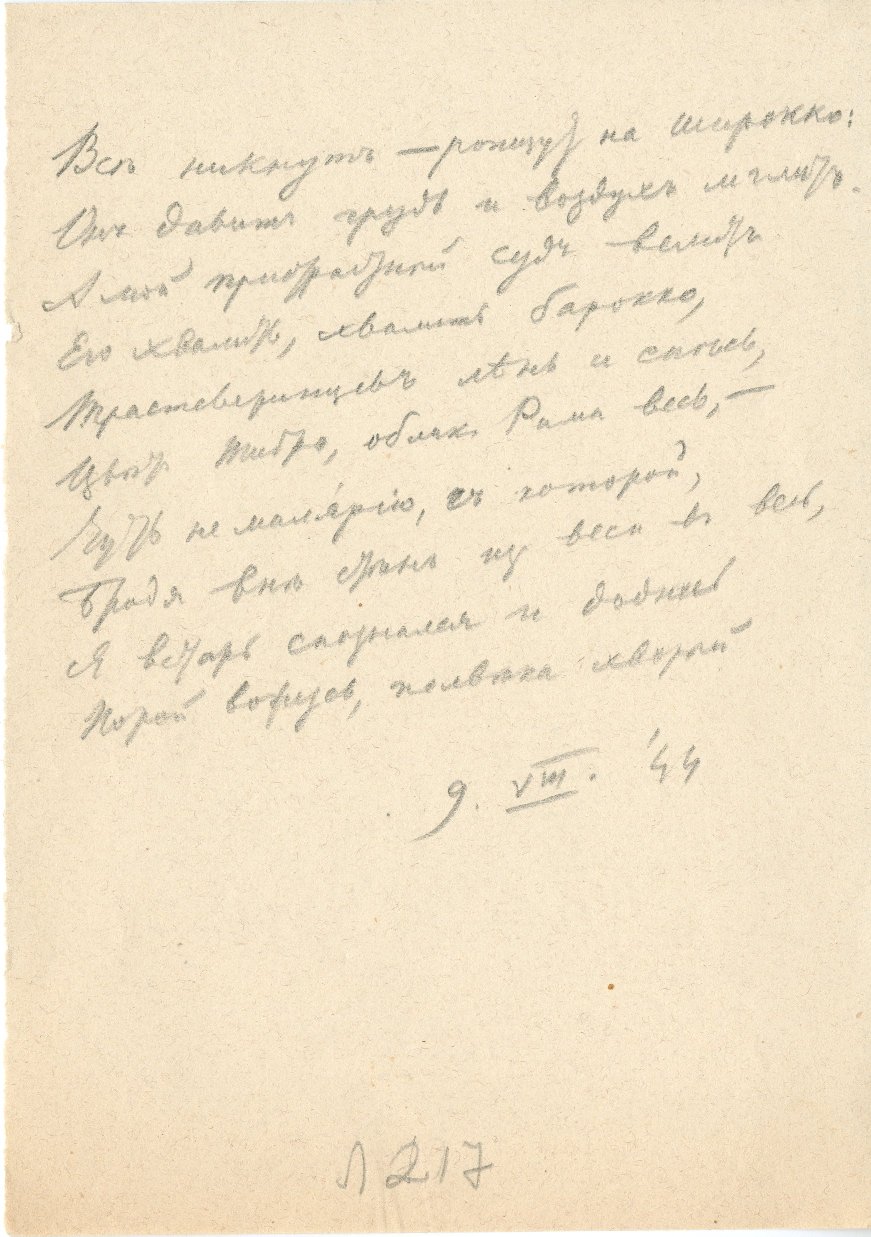 Всѣ никнутъ — ропщут на широкко:
Онъ давитъ грудь и воздухъ мглитъ.
А мой пристрастной судъ велитъ
Его хвалить, хвалить барокко,
Трастеверинцевъ лѣнь и спесь,
Цвѣт Тибра, облик Рима весь, —
Чуть не маля́рію, съ которой,
Бродя внѣ стѣнъ из веси в весь,
Я встарь спознался и доднесь
Порой вожусь, полвѣка хворый
9. VIII. '44
Л 217